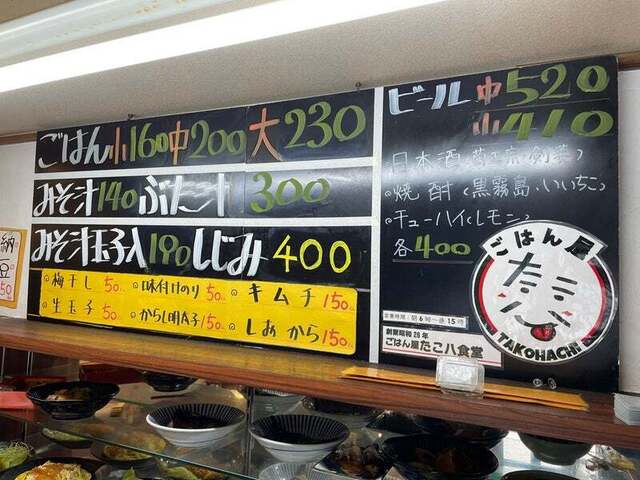 ごはん小160中200大230
みそ汁140ぶた汁300
みそ汁玉子入190しじみ400
梅干し50 味付けのり50 キムチ150
生玉子50 からし明太子150 しおから150
ビール中520
小410
日本酒
焼酎(黒霧島・いいちこ)
チューハイ(レモン)
各400
ごはん屋
たこ
TAKOHACHI
営業時間:朝6時〜昼15時
創業昭和26年
ごはん屋たこ八食堂
納豆
50